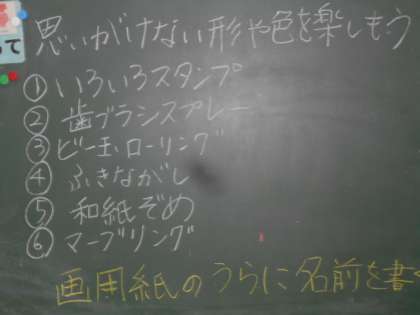 思いがけない形や色を楽しもう
① いろいろスタンプ
② 歯ブラシスプレー
③ ビー玉ローリング
④ ふきながし
⑤ 和紙ぞめ
⑥ マーブリング
画用紙のうらに名前を書